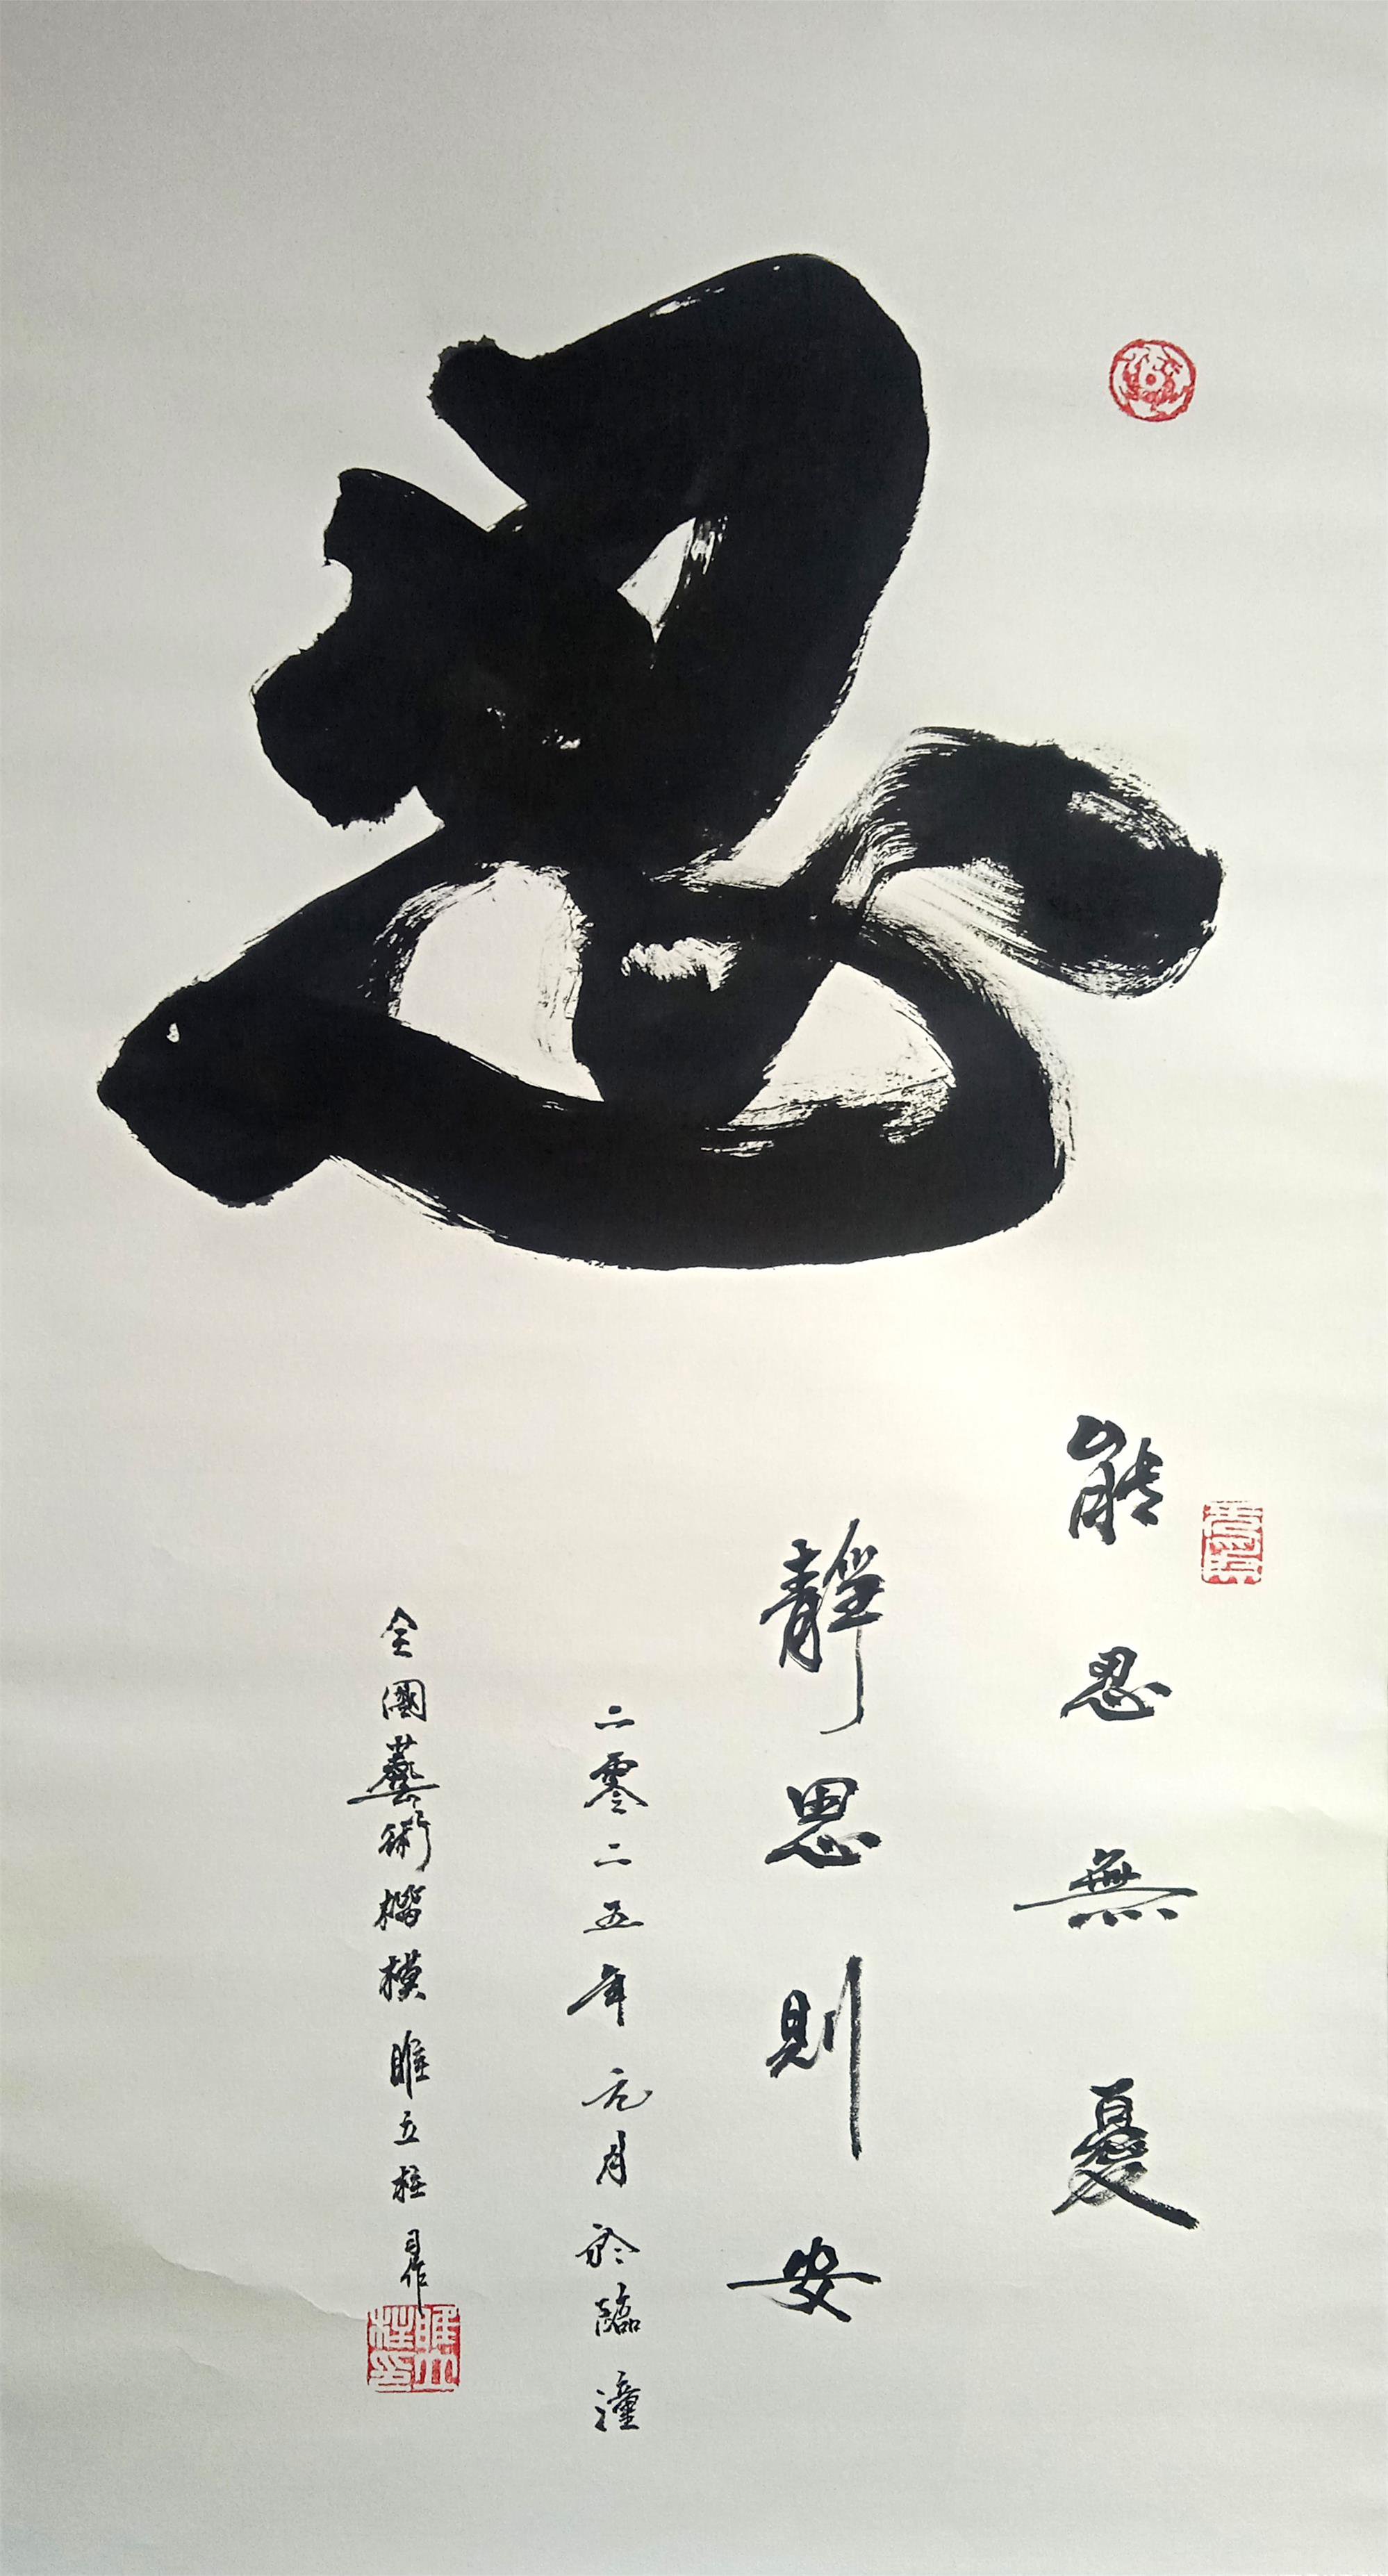 忍
能忍無憂
靜思則安
二零二五年元月於臨潼
全國藝術楷模 睢五柱 司作